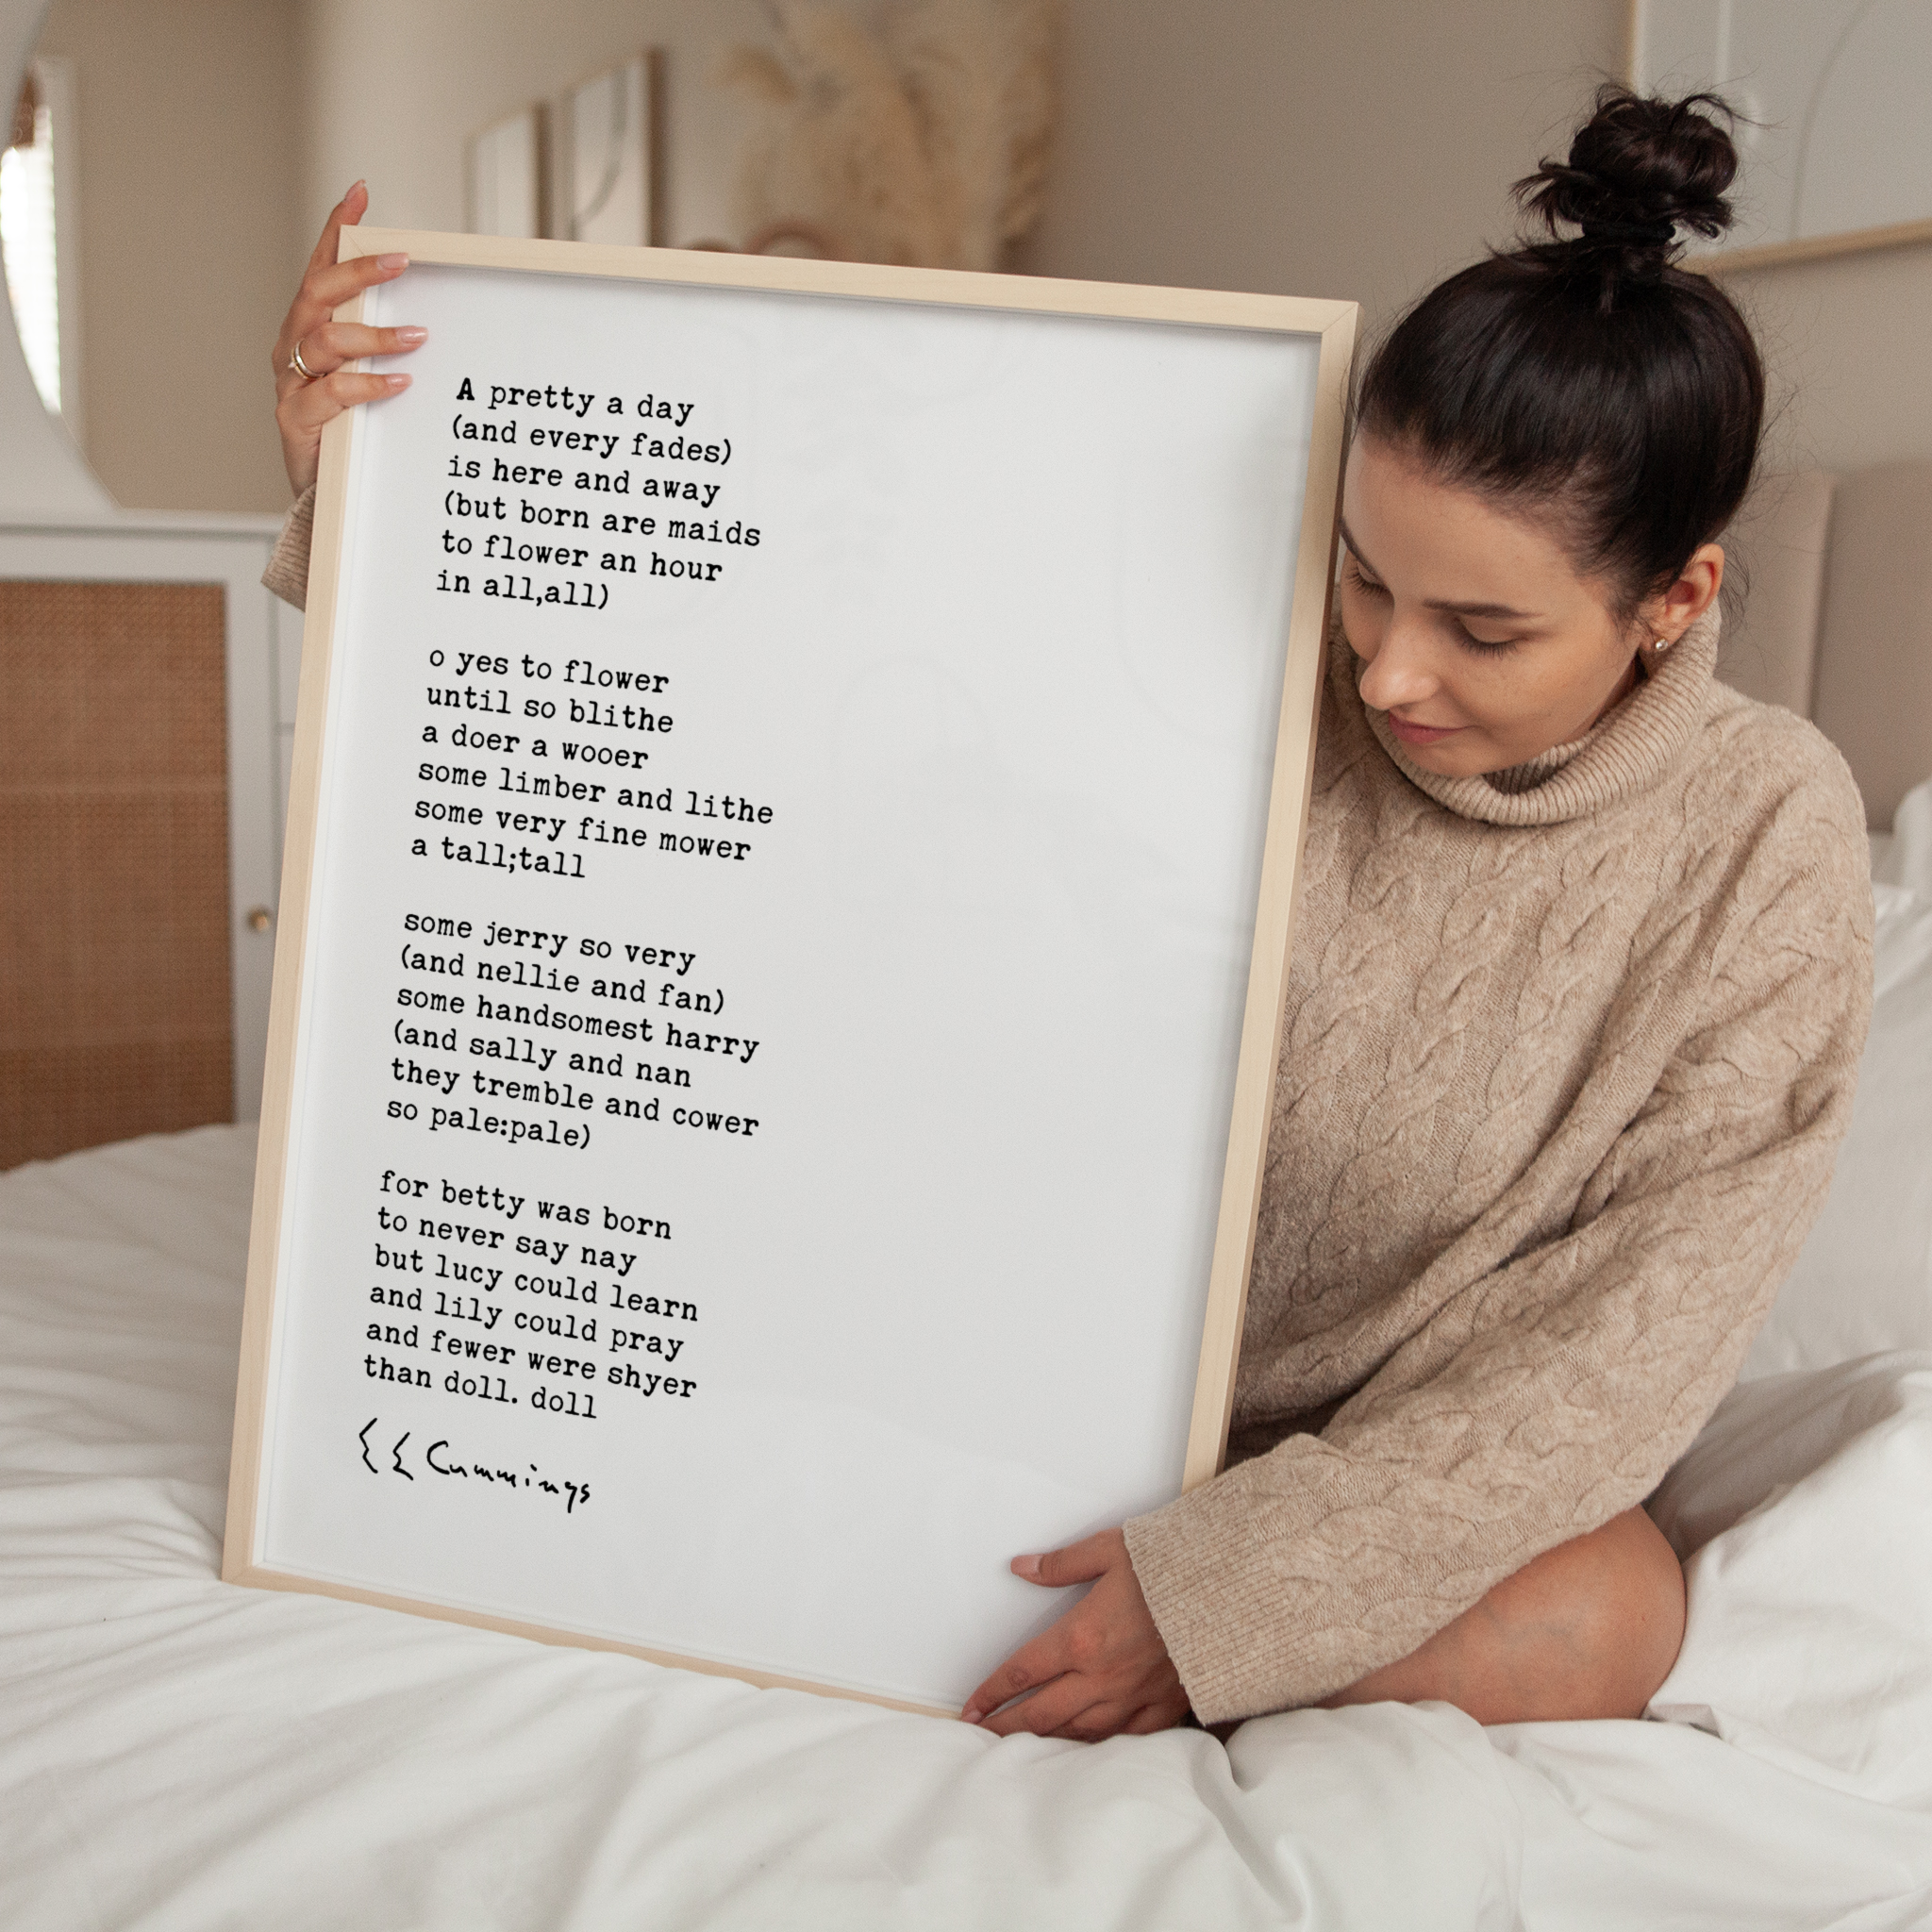 A pretty a day
(and every fades)
is here and away
(but born are maids
to flower an hour
in all,all)
o yes to flower
until so blithe
a doer a wooer
some limber and lithe
some very fine mower
a tall;tall
some jerry so very
(and nellie and fan)
some handsomest harry
(and sally and nan
they tremble and cower
so pale:pale)
for betty was born
to never say nay
but lucy could learn
and lily could pray
and fewer were shyer
than doll. doll
EE Cummings